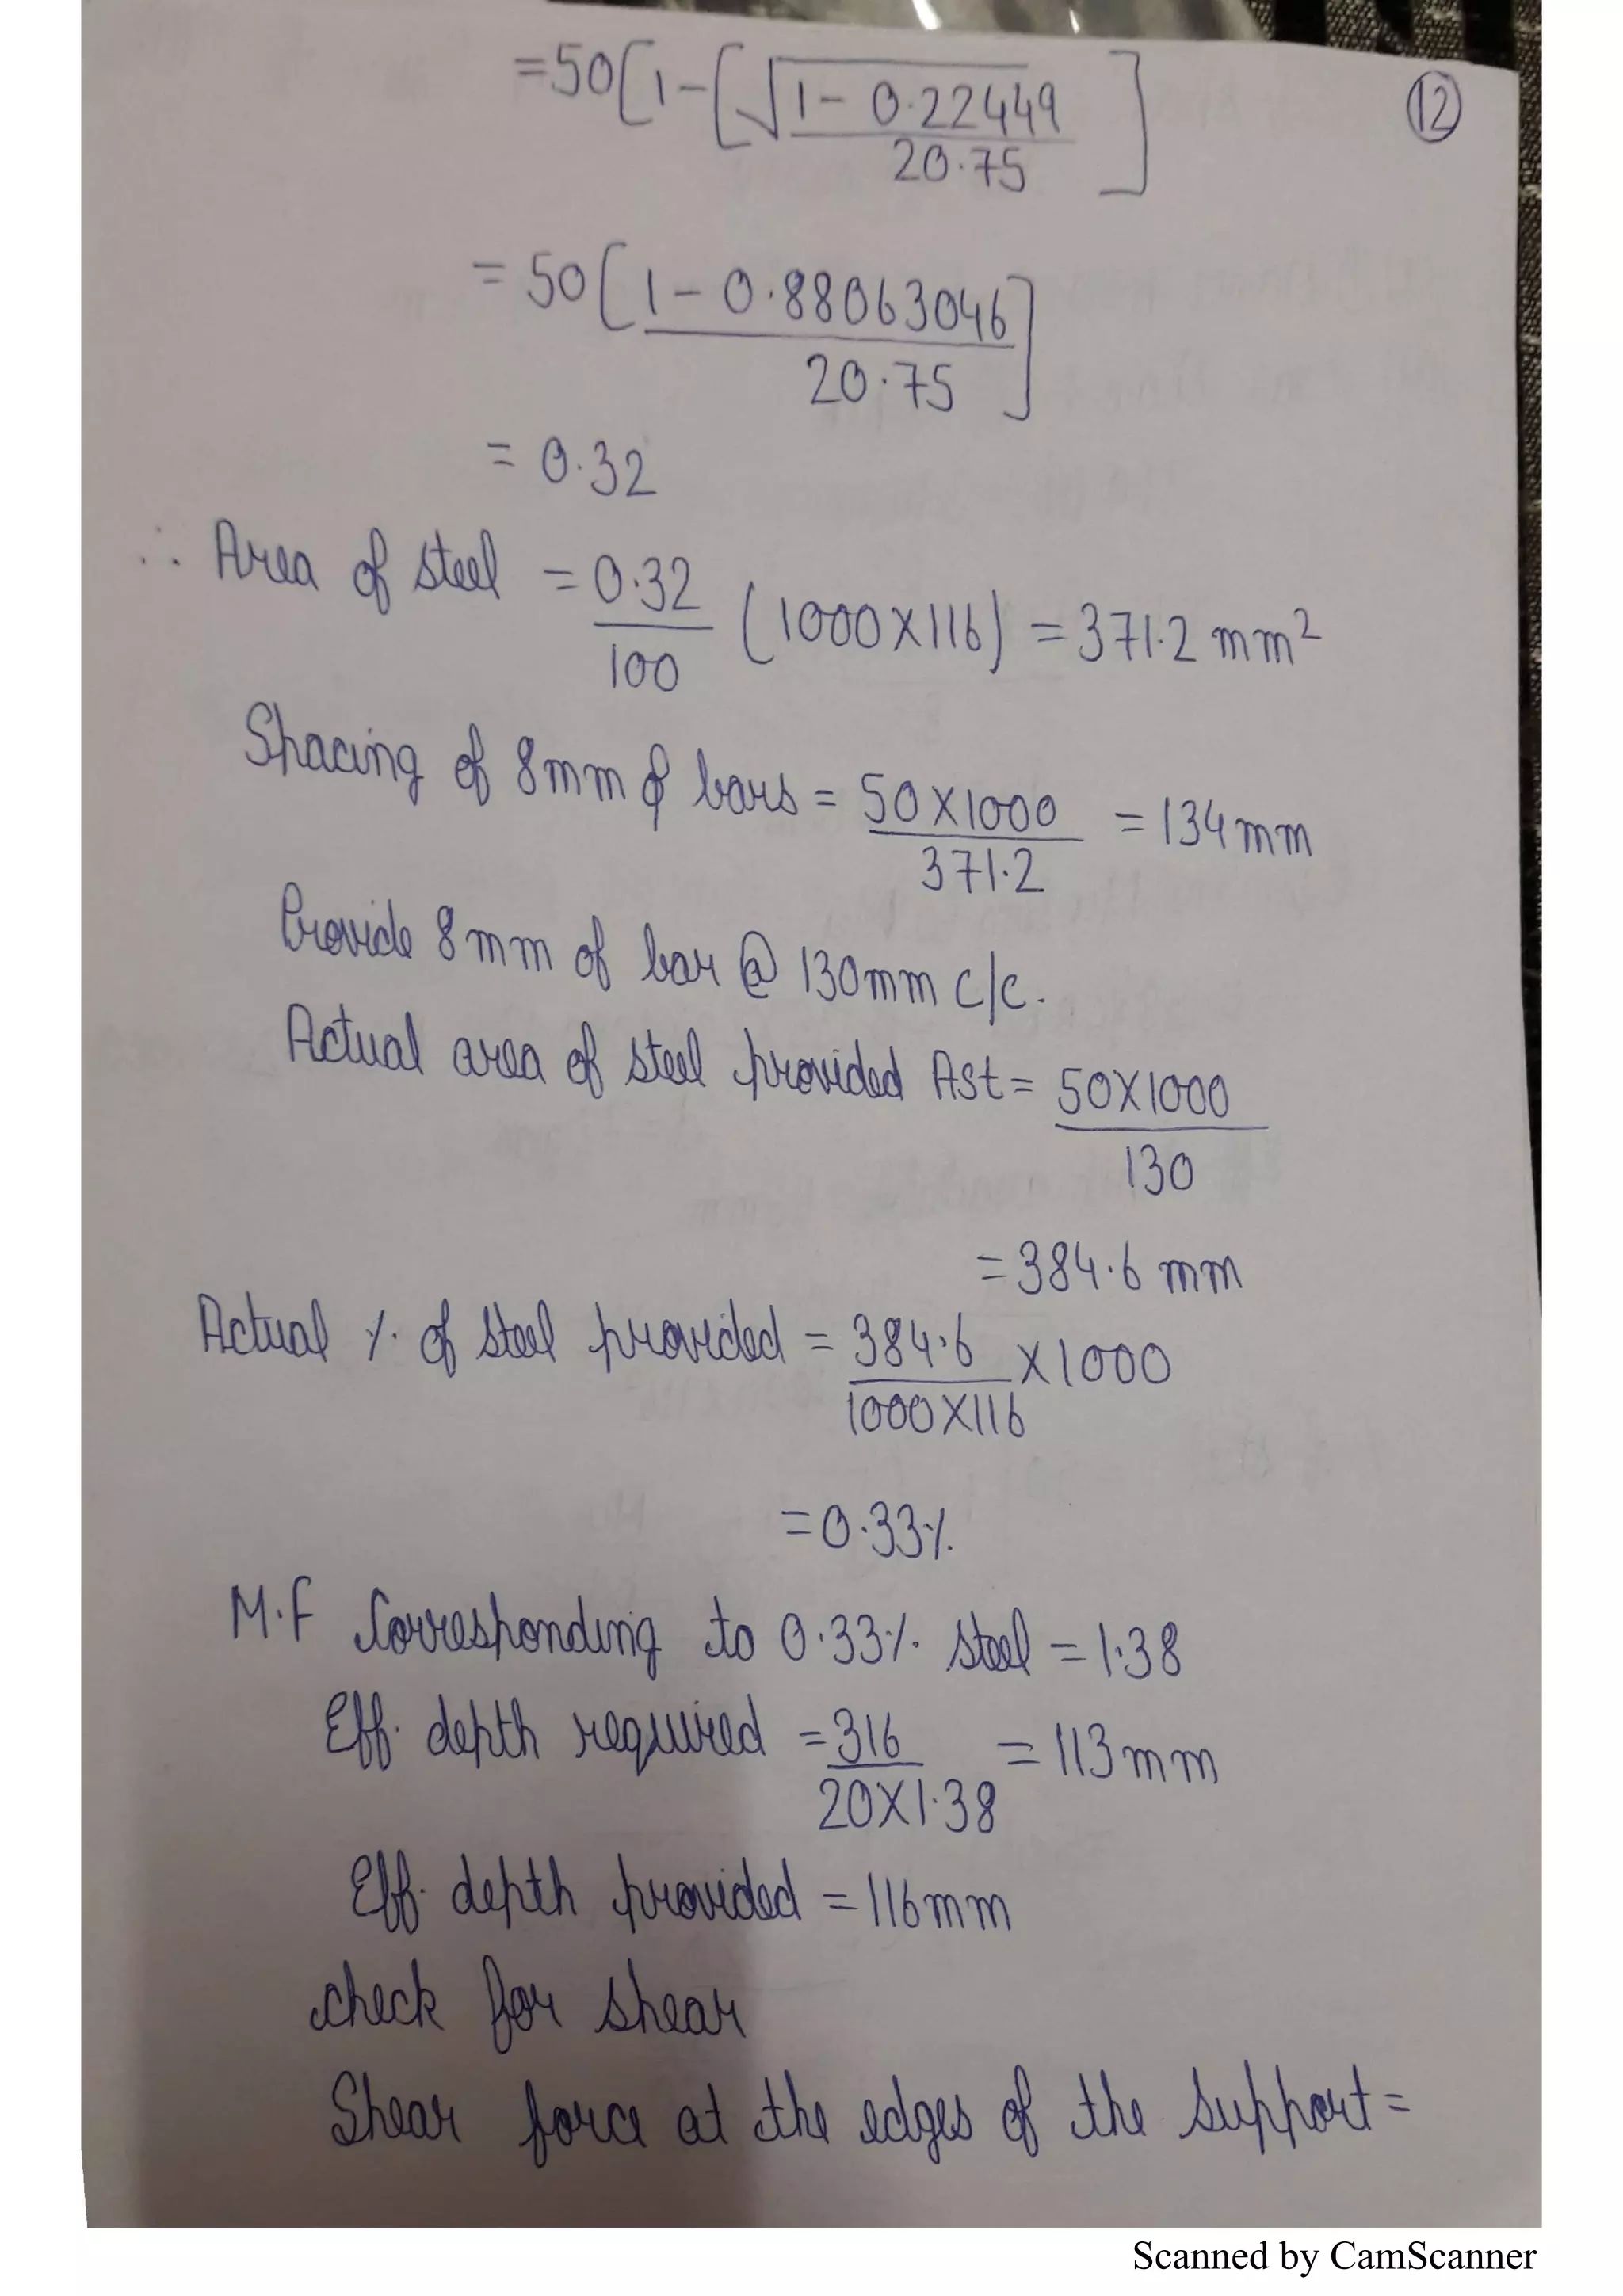 =50[1-[√1-0.22449
20.75]
(12)
=50[1-0.88063046
20.75]
= 0.32
∴ Area of steel = 0.32/100 (1000×116) = 371.2 mm²
Spacing of 8mm ϕ bars = 50×1000/371.2 = 134mm
Provide 8mm of bar @ 130mm c/c.
Actual area of steel provided Ast = 50×1000/130
=384.6 mm
Actual % of steel provided = 384.6/1000×116 ×1000
=0.33%
M.F Corresponding to 0.33% steel = 1.38
Eff. depth required = 316/20×1.38 = 113mm
Eff. depth provided = 116mm
check for shear
Shear force at the edges of the support =
Scanned by CamScanner